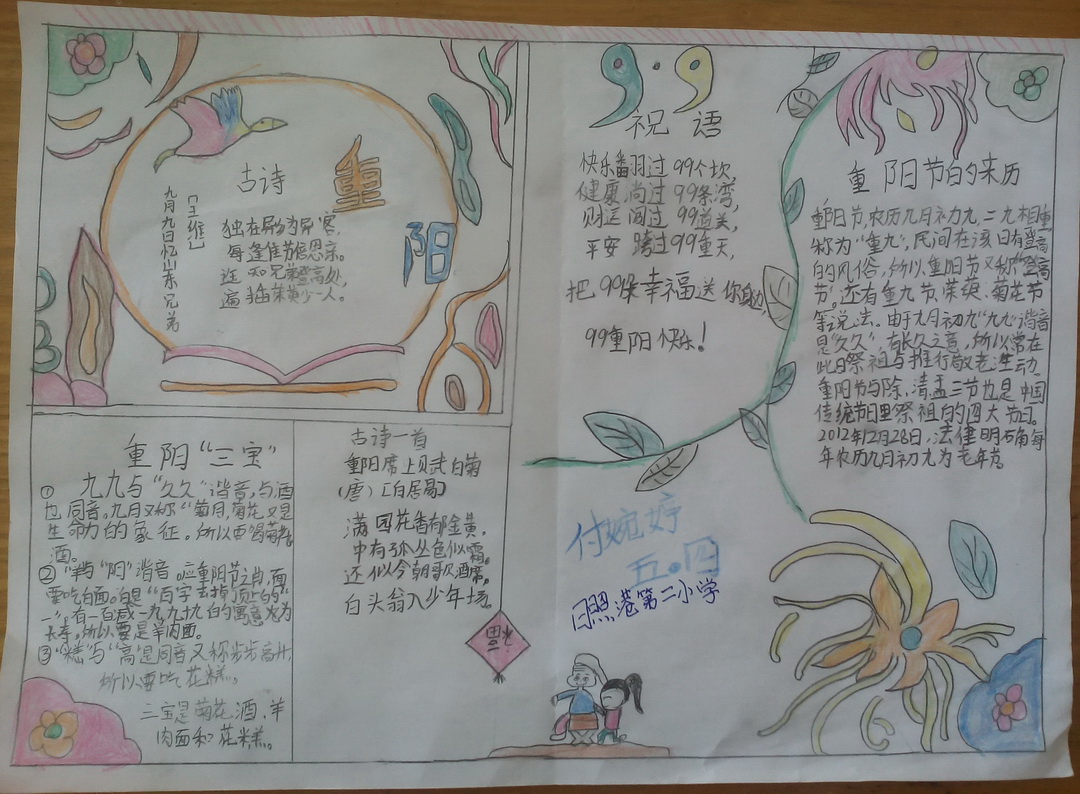 重
阳
古诗
九月九日忆山东兄弟
[王维]
独在异乡为异客,
每逢佳节倍思亲。
遥知兄弟登高处,
遍插茱萸少一人。
重阳“三宝”
① 九九与“久久”谐音,与酒
也同音。九月又称“菊月,菊花又是
生命力的象征。所以要喝菊花
酒。
② “羊与“阳”谐音。应重阳节之肖,面
要吃白面。白是“百”字去掉顶上的“
一”,有一百减一九九十九的寓意火为
长寿。所以要是羊肉面。
③“糕”与“高”是同音又称步步高升,
所以要吃花糕。
三宝是菊花酒.羊
肉面和花糕。
古诗一首
重阳席上赋白菊
(唐)[白居易]
满园花香郁金黄,
中有孤丛色似霜。
还似今朝歌酒席。
白头翁入少年场。
福
9·9
祝语
快乐翻过99个坎,
健康尚过99条湾,
财运闯过99道关,
平安跨过99重天,
把99朵幸福送你身边,
99重阳快乐!
付婉婷
五。四
日照港第二小学
重阳节的来历
重阳节,农历九月初九,二九相重,
称为“重九”,民间在该日有登高
的风俗,所以重阳节又称“登高
节”。还有重九节、茱萸、菊花节
等说法。由于九月初九“九九”谐音
是“久久”,有长久之意,所以常在
此日祭祖与推行敬老活动。
重阳节与除、清、盂三节也是中国
传统节日里祭祖的四大节日。
2012年12月28日,法律明确每
年农历九月初九为老年节。